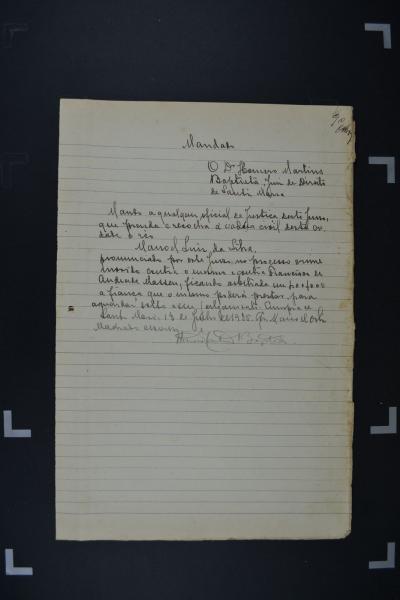 Mandado
O Dr Homero Martins
Baptista, Juiz de Direito
de Santa Maria
Mando a qualquer official de Justiça deste Juizo,
que prenda e recolha á cadeia civil desta ci
dade o réo
Manoel Luiz da Silva,
pronunciado por este Juizo no processo crime
movido contra o mesmo e contra Francisco de
Andrade Massem, ficando arbitrada em
a fiança que o mesmo poderá prestar, para
aguardar solto o seu julgamento. Cumpra-se
Sant. Maria, 13 de Julho de Eu,
Machado escrivão